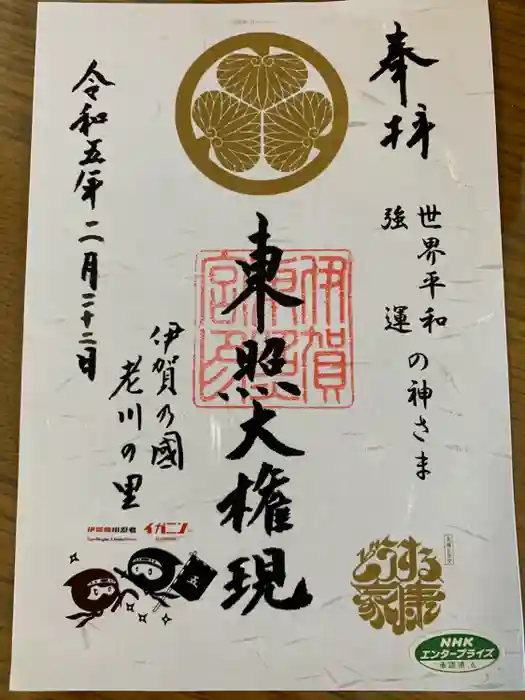 奉拝
世界平和
強運
の神さま
東照大権現
伊賀
東照
宮
伊賀乃國
老川の里
令和五年二月二十二日
イガニン
五
どうする家康
NHK
エンタープライズ